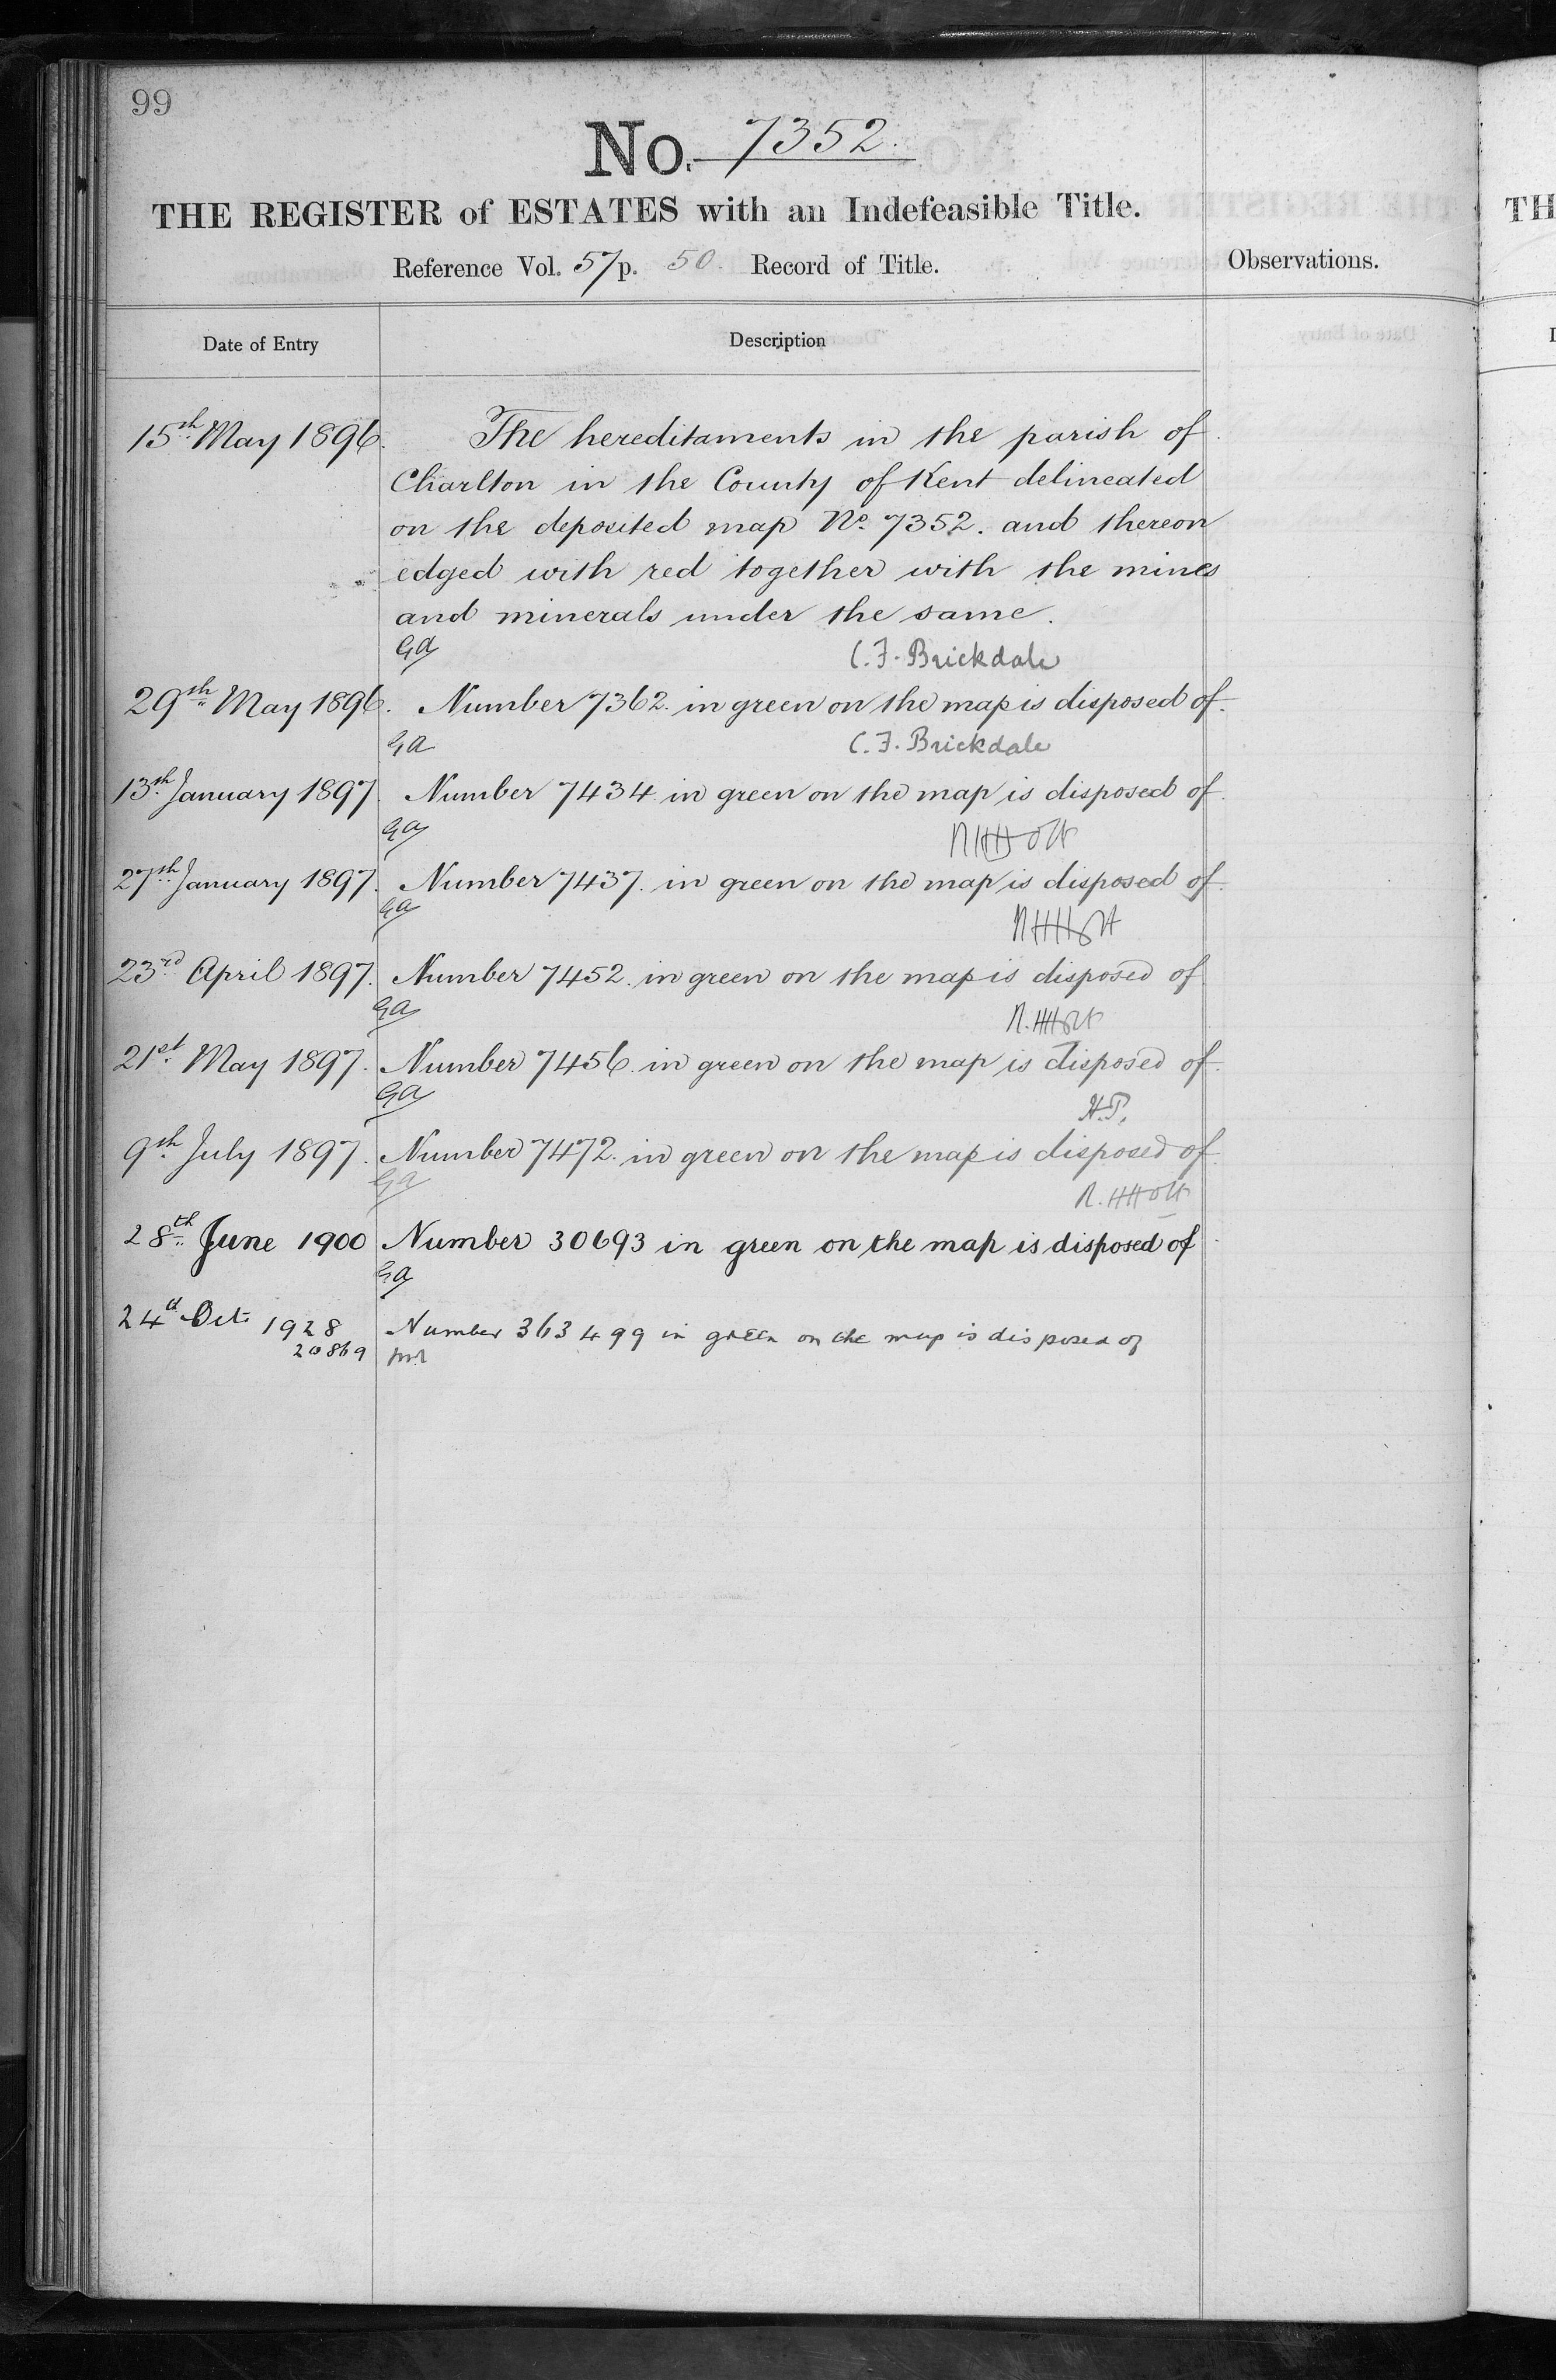 99
No. 7352.
THE REGISTER of ESTATES with an Indefeasible Title.
Reference Vol. 57 p. 50. Record of Title.
Observations.
TH
Date of Entry
Description
15th May 1896. The hereditaments in the parish of
Charlton in the County of Kent delineated
on the deposited map No. 7352. and thereon
edged with red together with the mines
and minerals under the same.
Ga C. F. Brickdale
29th May 1896. Number 7362. in green on the map is disposed of.
Ga C. F. Brickdale
13th January 1897. Number 7434. in green on the map is disposed of.
Ga
27th January 1897. Number 7437. in green on the map is disposed of.
Ga
23rd April 1897. Number 7452. in green on the map is disposed of
Ga
21st May 1897. Number 7456. in green on the map is disposed of.
Ga H.P.
9th July 1897. Number 7472. in green on the map is disposed of
Ga
28th June 1900 Number 30693 in green on the map is disposed of
Ga
24th Oct 1928 Number 363499 in green on the map is disposed of
20869